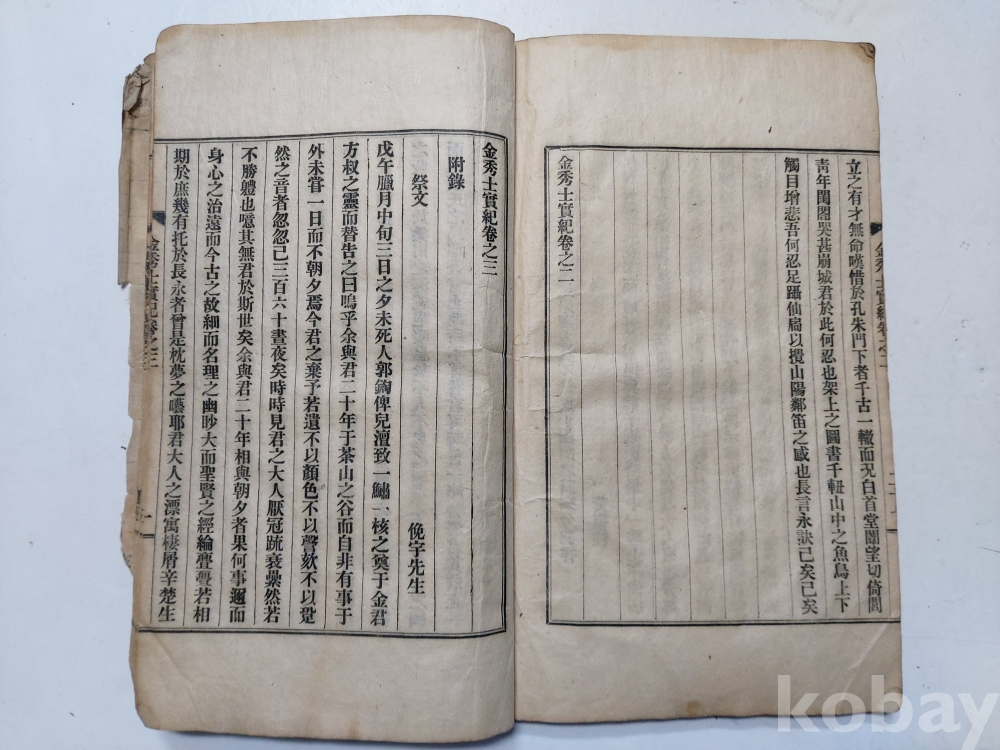 立之有才無命嘆惜於孔朱門下者千古一轍而况白首堂闈望切倚閭
靑年閨閤哭甚崩城君於此何忍也架上之圖書千軸山中之魚鳥上下
觸目增悲吾何忍足躡仙扃以攪山陽鄰笛之感也長言永訣已矣已矣
金秀士實紀卷之二
金秀士實紀卷之三
附錄
祭文
俛宇先生
戊午臘月中旬三日之夕未死人郭鋾俾兒澶致一鱐一核之奠于金君
方叔之靈而替告之曰嗚乎余與君二十年于茶山之谷而自非有事于
外未嘗一日而不朝夕焉今君之棄予若遺不以顏色不以謦欬不以跫
然之音者忽忽已三百六十晝夜矣時時見君之大人厭冠䟽衰纍然若
不勝軆也噫其無君於斯世矣余與君二十年相與朝夕者果何事邇而
身心之治遠而今古之故細而名理之幽眇大而聖賢之經綸亹亹若相
期於庶幾有托於長永者曾是枕夢之囈耶君大人之漂寓棲屑辛楚生
金秀士實紀卷之三
kobay